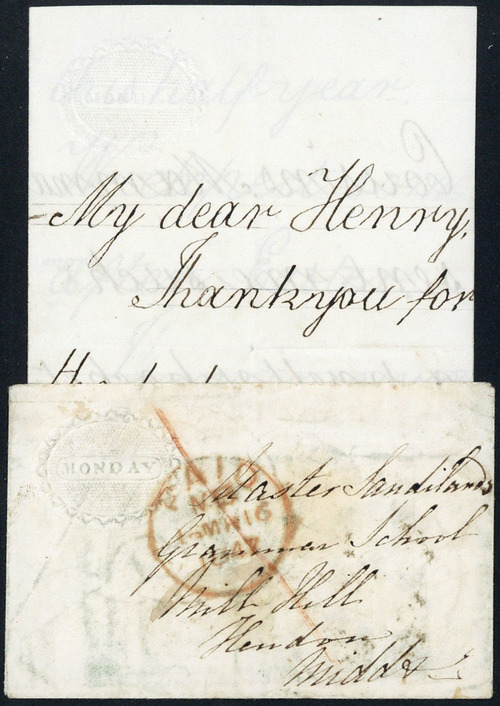 MONDAY
half year
My dear Henry,
Thank you for
the
MONDAY
PAID
MR 16
Master Sandilands
Grammar School
Mill Hill
Hendon
Middx